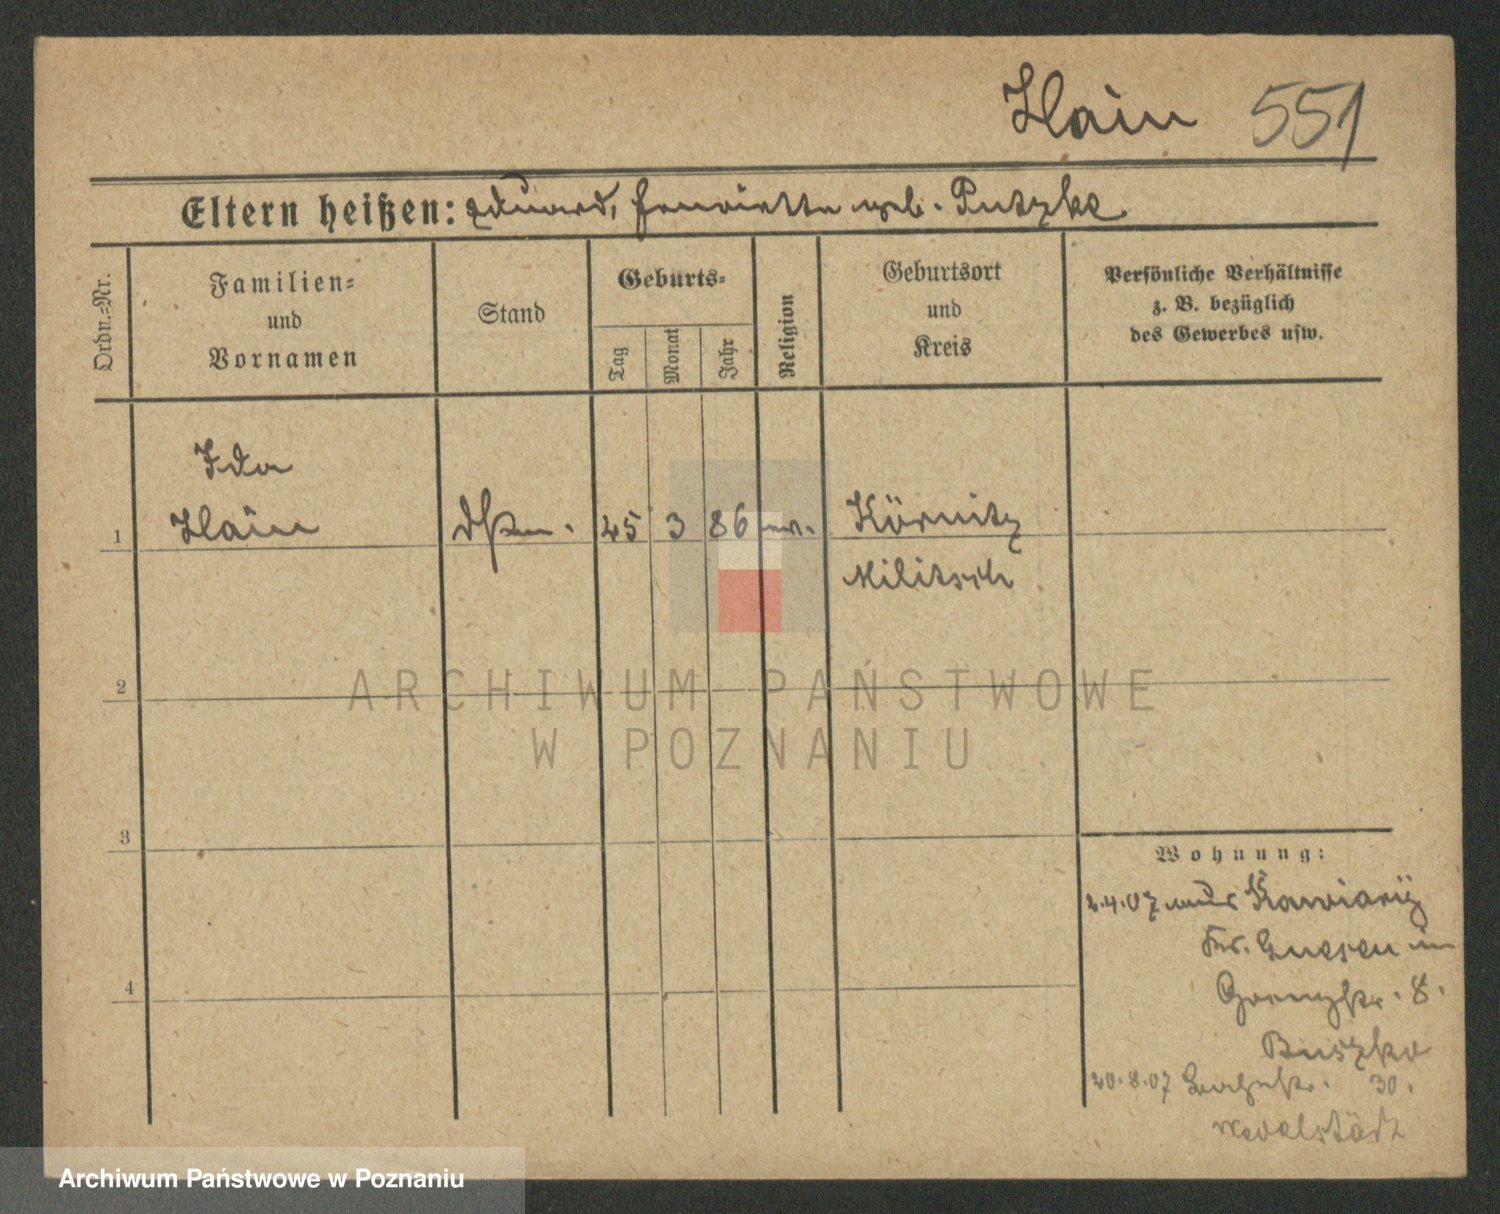 Hain 551
Eltern heißen: Eduard, Henriette geb. Putzke
Ordn.=Nr.
Familien=
und
Vornamen
Stand
Geburts=
Tag
Monat
Jahr
Religion
Geburtsort
und
Kreis
Persönliche Verhältnisse
z. B. bezüglich
des Gewerbes usw.
Ida
1 Hain 25 3 86 ev. Körnitz
Militsch
2
3
4
Wohnung:
2.4.07 aus
Kr. Gnesen in
Grenzstr. 8.
Buszka
20.8.07 30.
ARCHIWUM PAŃSTWOWE
W POZNANIU
Archiwum Państwowe w Poznaniu